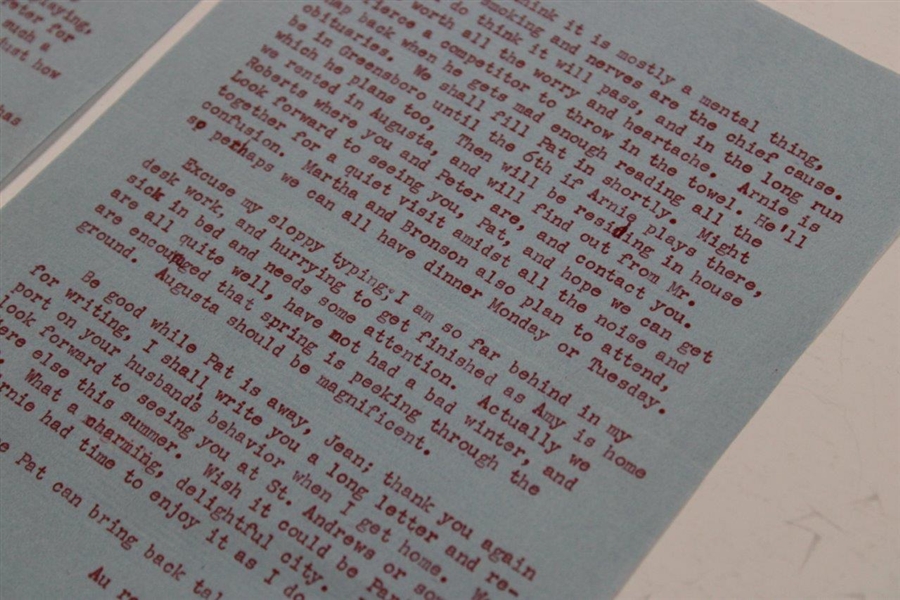 playing,
eer for
such a
Just how
has
think it is mostly a mental thing,
smoking and nerves are the chief cause.
I do think it will pass, and in the long run
worth all the worry and heartache. Arnie is
fierce a competitor to throw in the towel. He'll
snap back when he gets mad enough reading all the
obituaries. We shall fill Pat in shortly. Might
be in Greensboro until the 6th if Arnie plays there,
which he plans too, Then will be residing in house
we rented in Augusta, and will find out from Mr.
Roberts where you and Peter are, and contact you.
Look forward to seeing you, Pat, and hope we can get
together for a quiet visit amidst all the noise and
confusion. Martha and Bronson also plan to attend,
so perhaps we can all have dinner Monday or Tuesday.
Excuse my sloppy typing; I am so far behind in my
desk work, and hurrying to get finished as Amy is home
sick in bed and needs some attention. Actually we
are all quite well, have not had a bad winter, and
are encouraged that spring is peeking through the
ground. Augusta should be magnificent.
Be good while Pat is away, Jean; thank you again
for writing, I shall write you a long letter and re-
port on your husbands behavior when I get home. W
look forward to seeing you at St. Andrews or som
ere else this summer. Wish it could be Par
What a charming, delightful city.
rnie had time to enjoy it as I do
e Pat can bring back tal
Au re